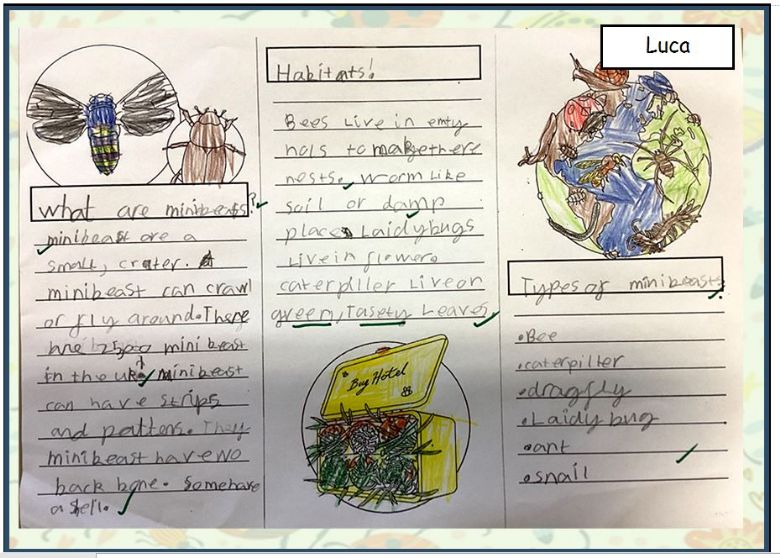 Luca
What are minibeasts?
minibeast are a
small, crater. A
minibeast can crawl
or fly around. There
are 25000 minibeast
in the uk. Minibeast
can have strips
and pattens. They
minibeast have no
back bone. Some have
a shell.
Habitats!
Bees Live in emty
hols to make there
nests. worm Like
soil or damp
places Laidybugs
Live in flowers
caterpiller Live on
green, Tasety Leaves
Bug Hotel
Types of minibeasts.
•Bee
•caterpiller
•dragfly
•Laidybug
•ant
•snail